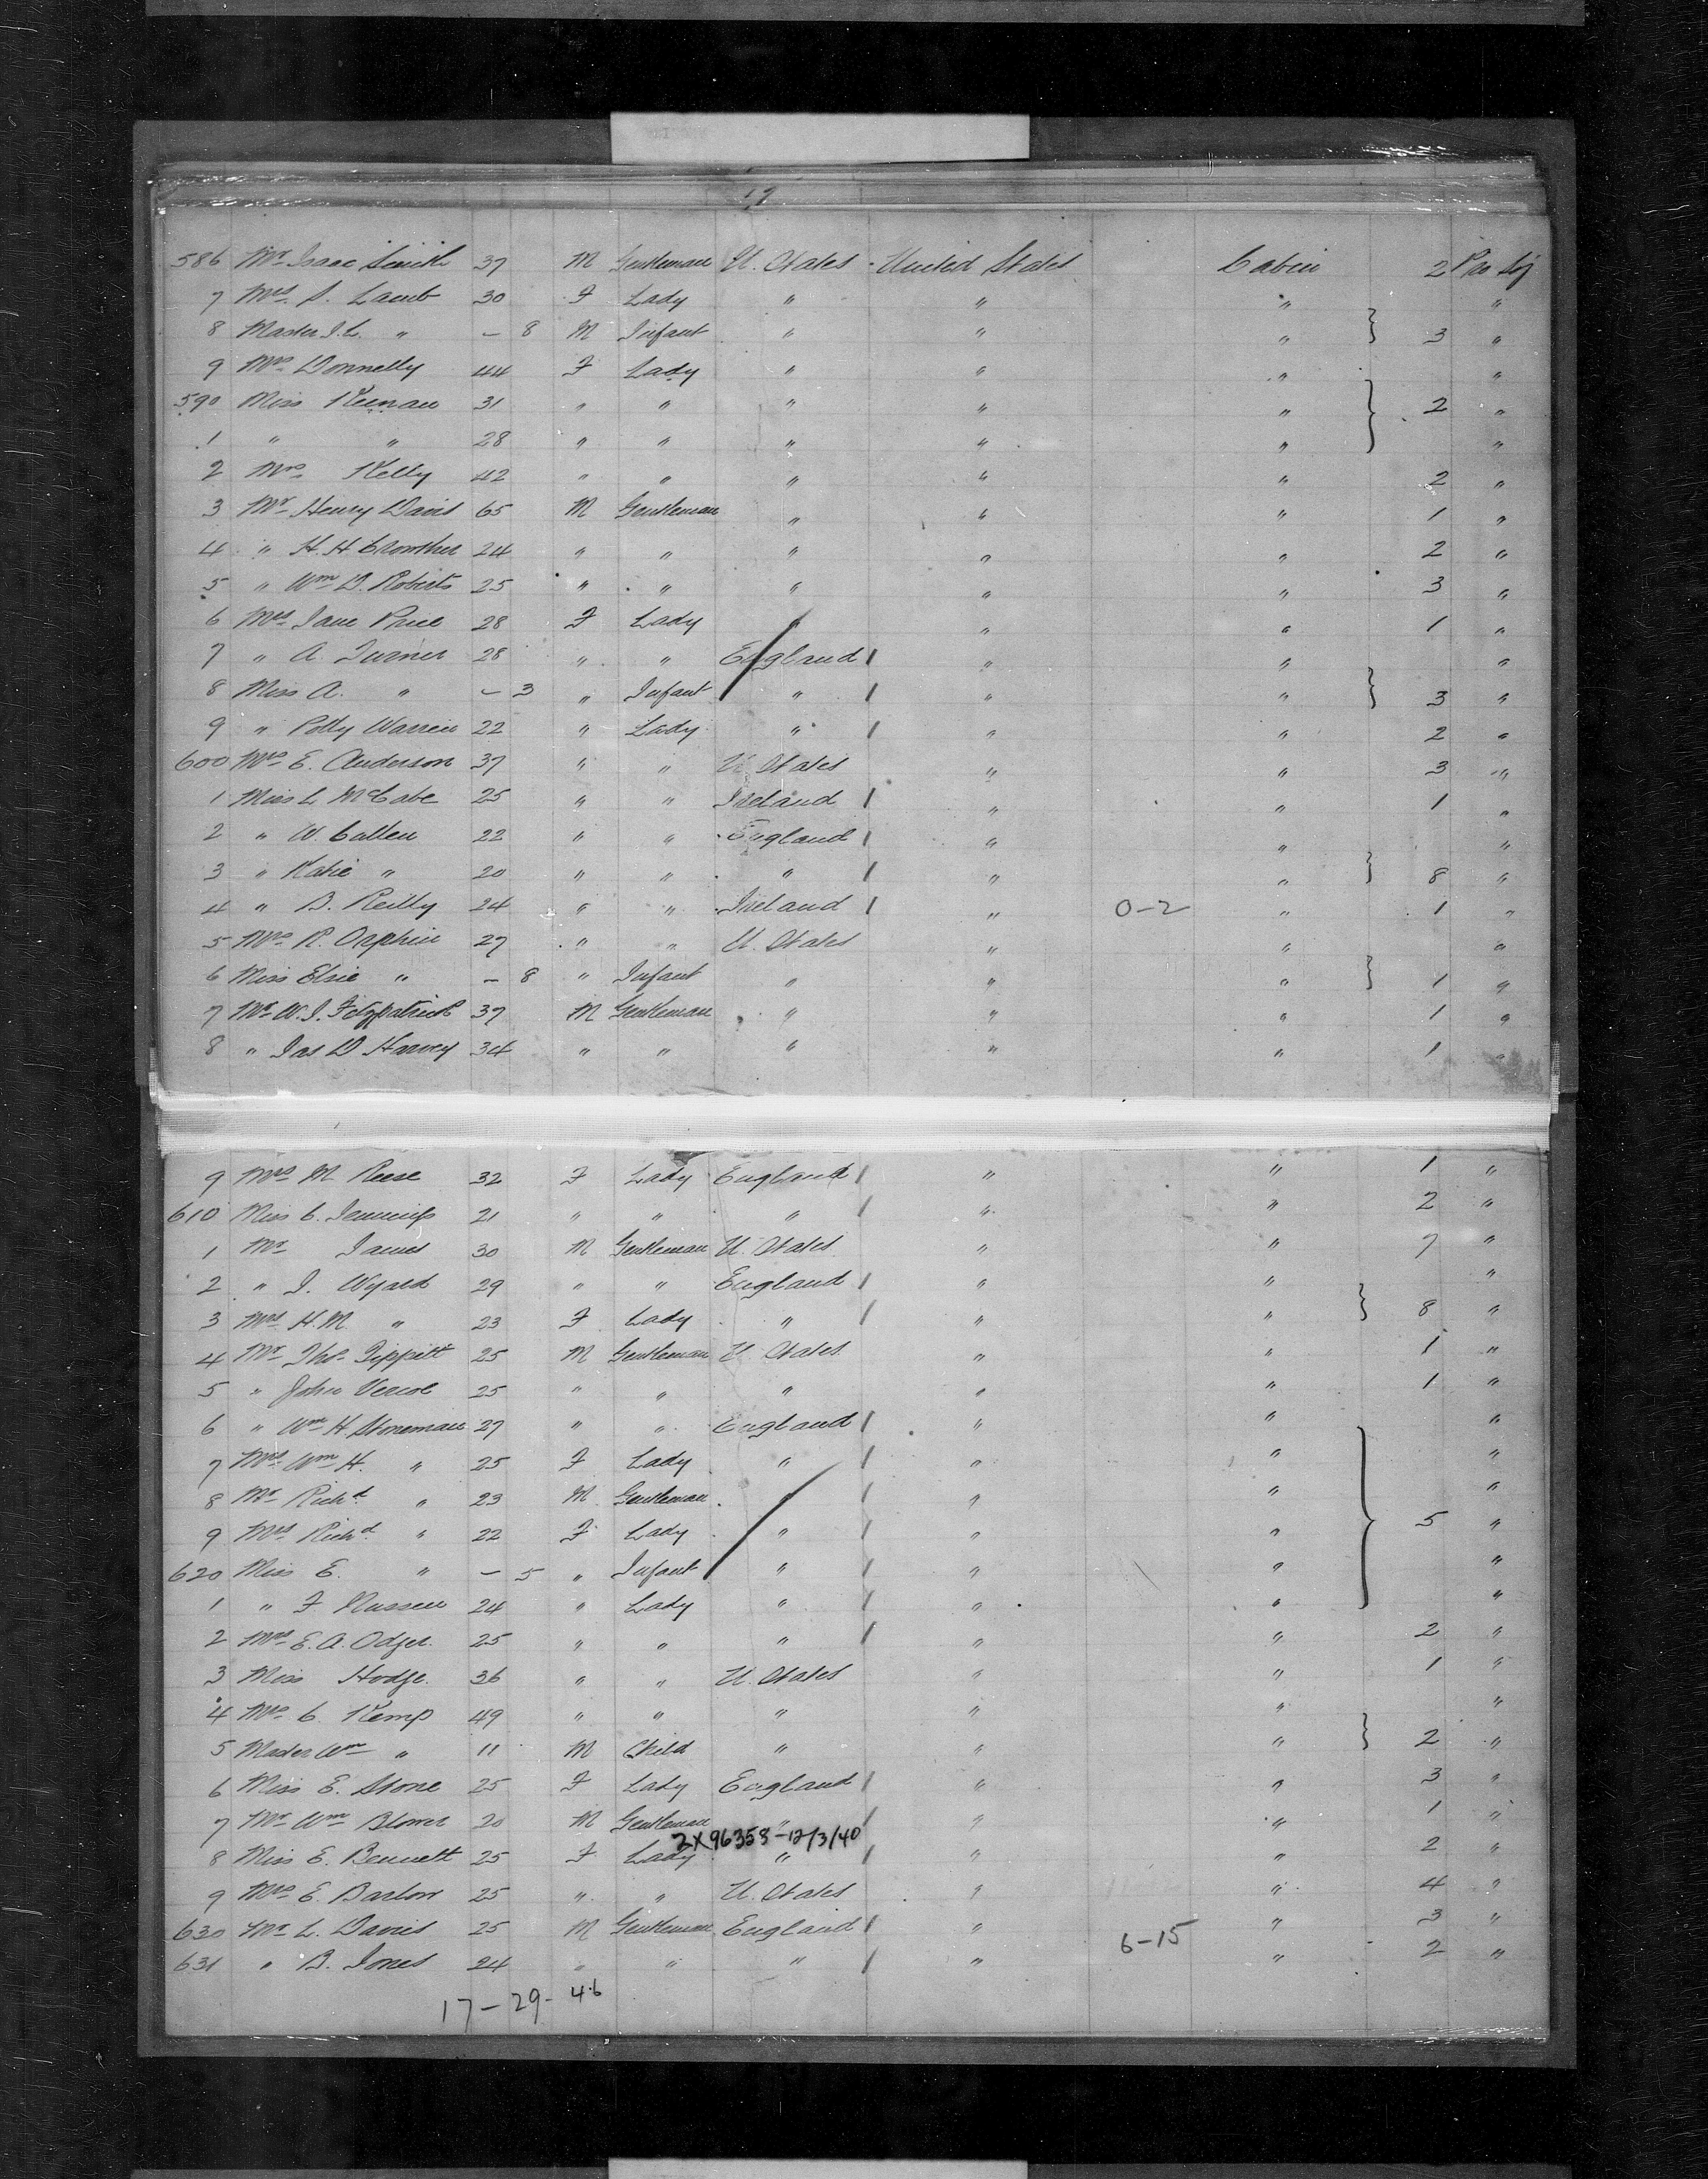 19
586 Mr. Isaac Smith 37 M Gentleman U. States United States Cabin 2 Pro Soj
7 Mrs. S. Lamb 30 F Lady " " " "
8 Master I. L. " – 8 M Infant " " " } 3 "
9 Mrs. Donnelly 44 F Lady " " " "
590 Miss Keenan 31 " " " " " } 2 "
1 " " 28 " " " " " "
2 Mrs. Kelly 42 " " " " " 2 "
3 Mr. Henry Davis 65 M Gentleman " " " 1 "
4 " H. H Crowther 24 " " " " " 2 "
5 " Wm D. Roberts 25 " " " " " 3 "
6 Mrs. Jane Price 28 F Lady " " " 1 "
7 " A. Turner 28 " " England / " " "
8 Miss A. " – 3 " Infant " / " " } 3 "
9 " Polly Warren 22 " Lady " / " " 2 "
600 Mrs. E. Anderson 37 " " U. States " " 3 "
1 Miss L McCabe 25 " " Ireland / " " 1 "
2 " W. Cullen 22 " " England / " " "
3 " Katie " 20 " " " / " " } 8 "
4 " B. Reilly 24 " " Ireland / " 0-2 " 1 "
5 Mrs. R. Orphin 27 " " U. States " " "
6 Miss Elsie " – 8 " Infant " " " } 1 "
7 Mr. W. J. Fitzpatrick 37 M Gentleman " " " 1 "
8 " Jas D Harvey 34 " " " " " 1 "
9 Mrs M Reese 32 F Lady England / " " 1 "
610 Miss C. Jennings 21 " " " / " " 2 "
1 Mr James 30 M Gentleman U. States " " 7 "
2 " J. Wyard 29 " " England / " " "
3 Mrs H. M. " 23 F Lady " / " " } 8 "
4 Mr Thos. Tippitt 25 M Gentleman U. States " " 1 "
5 " John Vercoe 25 " " " " " 1 "
6 " Wm H Stoneman 27 " " England / " " "
7 Mrs. Wm H. " 25 F Lady " / " " "
8 Mr Richd " 23 M Gentleman " / " " "
9 Mrs Richd " 22 F Lady " / " " } 5 "
620 Miss E. " – 5 " Infant " / " " "
1 " F 24 " Lady " / " " "
2 Mrs. E. A. Odger. 25 " " " / " " 2 "
3 Miss Hodge. 36 " " U. States " " 1 "
4 Mrs. C. Kemp 49 " " " " " "
5 Master Wm " 11 M Child " " " } 2 "
6 Miss E. Stone 25 F Lady England / " " 3 "
7 Mr Wm Blower 20 M Gentleman " / " " 1 "
2X96358-12/3/40
8 Miss E. Bennett 25 F Lady " / " " 2 "
9 Mrs E. Barlow 25 " " U. States " " 4 "
630 Mr L. Davies 25 M Gentleman England / " " 3 "
631 " B. Jones 24 " " " / " 6-15 " 2 "
17-29- 46